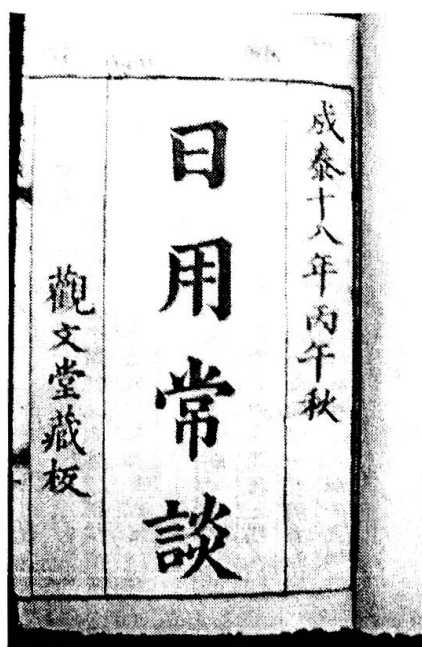 成泰十八年丙午秋
日用常談
觀文堂藏板